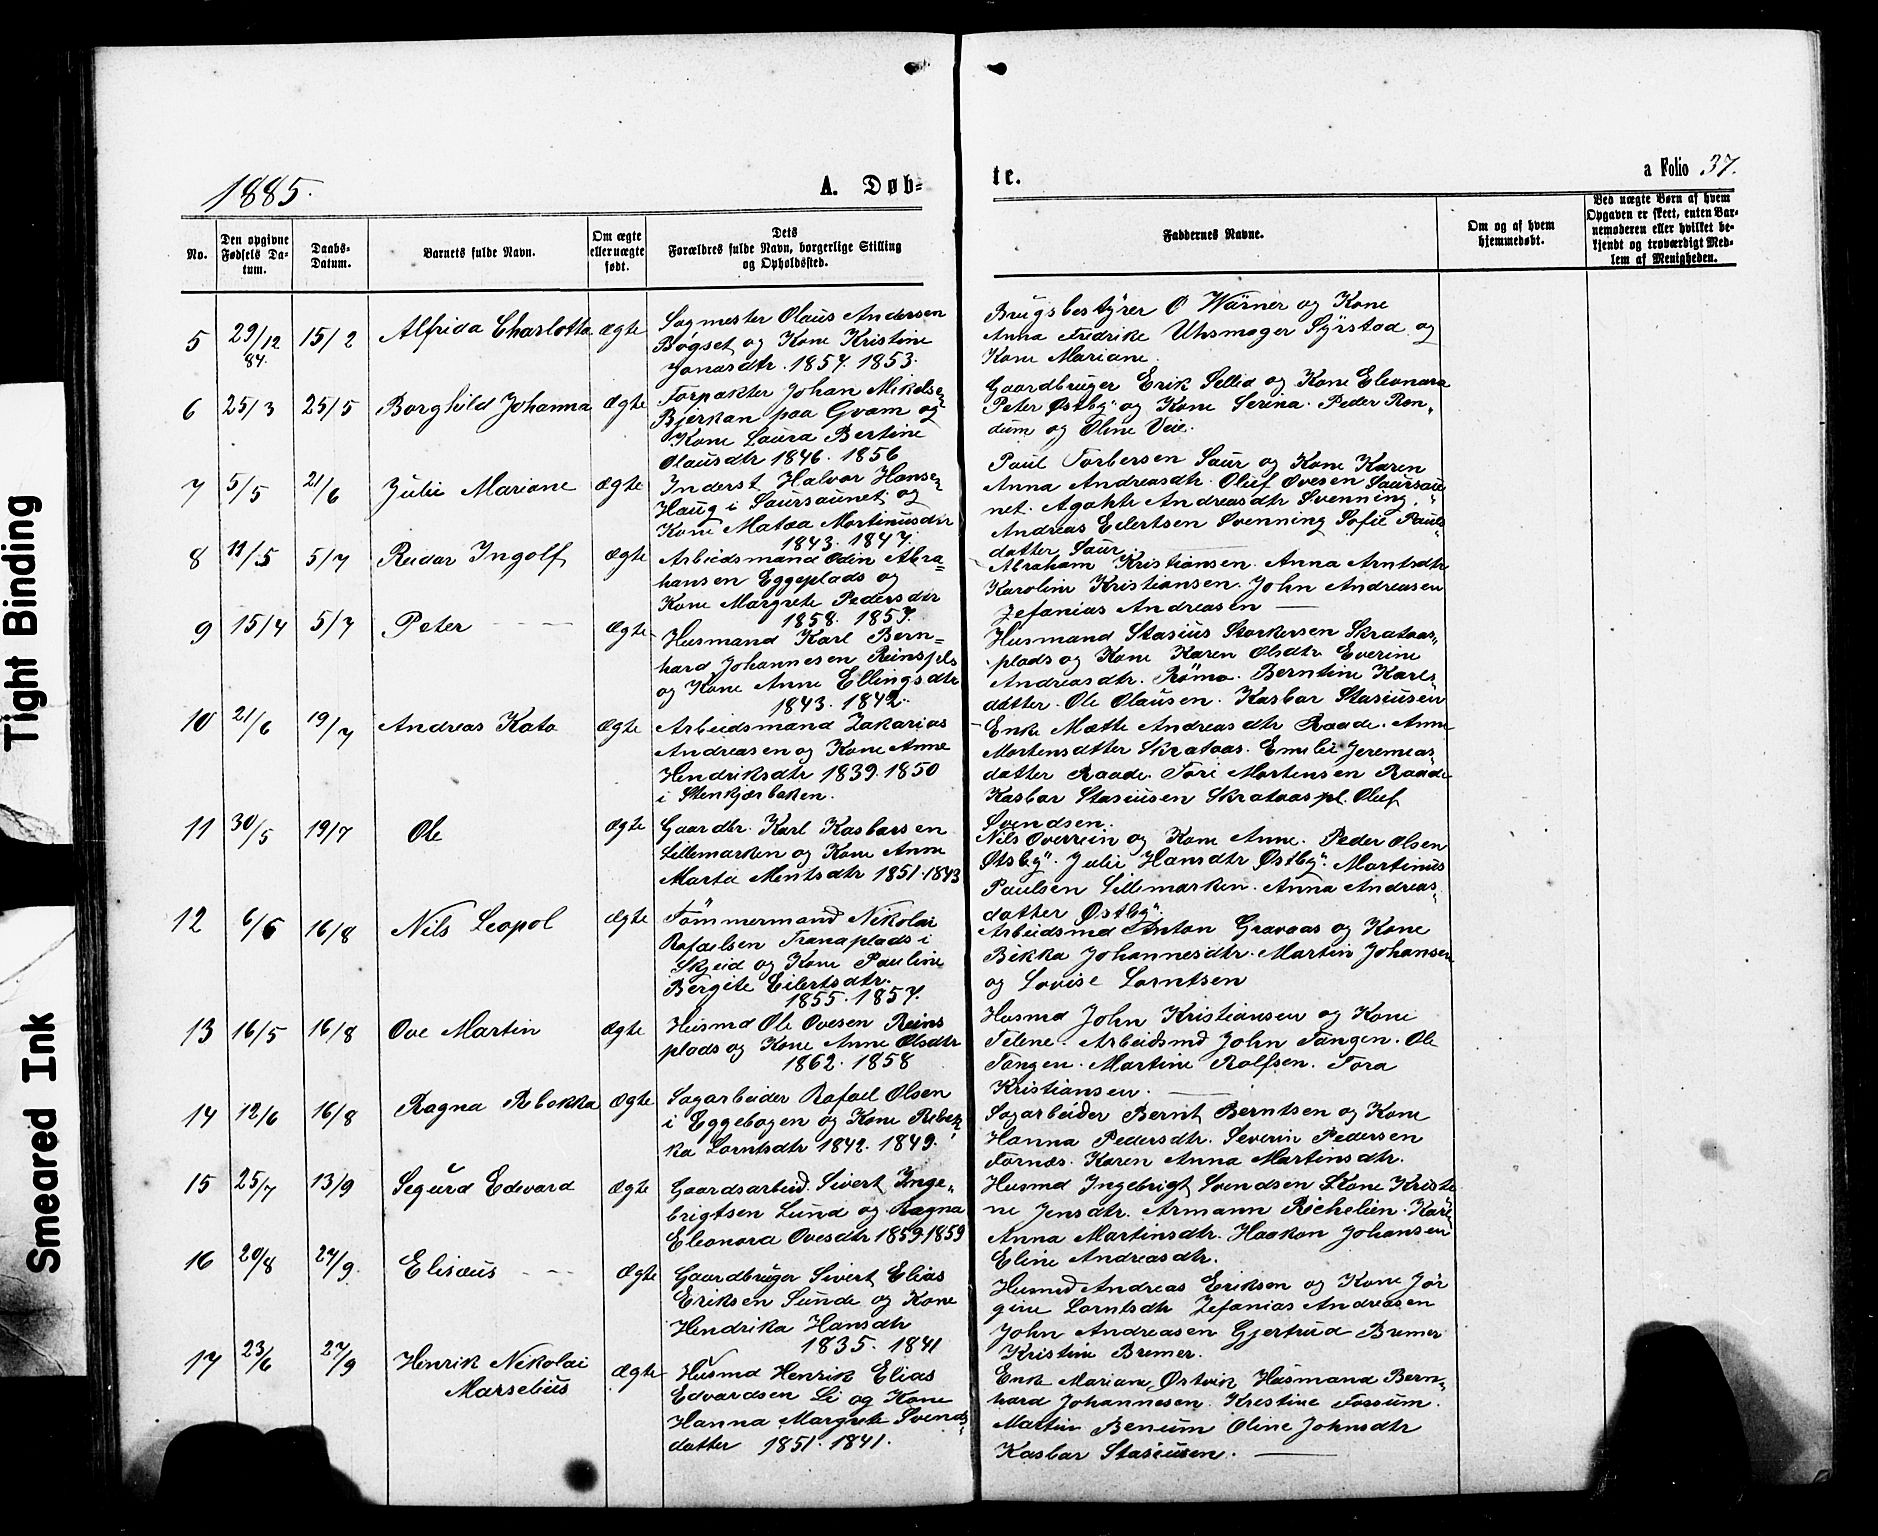 1885.
A. Døb-
te.
a Folio 37.
No.
Den opgivne Fødsels Datum.
Daabs-Datum.
Barnets fulde Navn.
Om ægte eller uægte født.
Dets Forældres fulde Navn, borgerlige Stilling og Opholdssted.
Faddernes Navne.
Om og af hvem hjemmedøbt.
Ved uægte Børn af hvem Opgaven er skeet, enten Barnemoderen eller hvilket bekjendt og troværdigt Medlem af Menigheden.
5 29/12 84. 15/2 Alfrida Charlotta ægte
Sagmester Olaus Andersen
Bogset og Kone Kristine
Jonasdtr. 1857. 1853.
Brugsbestyrer O Wärner og Kone
Anna Fredrike Uhsmager Syrstad og
Kone Mariane.
6 25/3 25/5 Borghild Johanna ægte
Forpakter Johan Mikalse
Bjerkan paa Gvam og
Kone Laura Bertine
Olausdtr 1846. 1856
Gaardbruger Erik Sellid og Kone Eleonara
Peter Østby og Kone Serina. Peder Ron„
dum og Oline Veie.
7 5/5 21/6 Julie Mariane ægte
Inderst Halvor Hanse„
Haug i Saursaunet og
Kone Matea Mortinusdtr
1843. 1847.
Paul Torbersen Saur og Kone Karen
Anna Andreasdtr. Oluf Ovesen Saursau„
net. Agahte Andreasdtr Svenning.
Andreas Eilertsen Svenning Sofie Pauls„
datter Saur.
8 11/5 5/7 Reidar Ingolf ægte
Arbeidsmand Odin Abra„
hansen Eggeplads og
Kone Margrete Pedersdtr
1858. 1857.
Abraham Kristiansen. Anna Arntsdtr
Karoline Kristiansen. John Andreasen
Zefanias Andreasen
9 15/4 5/7 Peter ægte
Husmand Karl Bern„
hard Johannesen Reinspls
og Kone Anne Ellingsdtr
1843. 1842.
Husmand Stasius Storkersen Skrataas„
plads og Kone Karen Olsdtr Everine
Andreasdtr. Römo. Berntine Karls„
datter. Ole Olausen. Kasbar Stasiusen
10 21/6 19/7 Andreas Kato ægte
Arbeidsmand Zakarias
Andreasen og Kone Anne
Hendriksdtr 1839. 1850
i Stenkjærbaken.
Enke Mætte Andreasdtr Raade. Anne
Mortensdatter Skrataas. Emelie Jeremias„
datter Raade. Tore Mortensen Raade
Kasbar Stasiusen Skrataaspl. Oluf
Svendsen.
11 30/5 19/7 Ole ægte
Gaardbr. Karl Kasbarsen
Lillemarken og Kone Anne
Marta Mentsdtr 1851. 1843
Nils Overrein og Kone Anne. Peder Olsen
Øtsby. Julie Hansdtr Østby. Martinus
Paulsen Lillemarken. Anna Andreas„
datter Østby
12 6/6 16/8 Nils Leopol ægte
Tömmermand Nikolai
Rafaelsen Tranaplads i
Skjeid og Kone Pauline
Bergite Eilertsdtr.
1855. 1857.
Arbeidsmd Anton Gravaas og Kone
Bekka Johannesdtr. Martin Johansen
og Lovise Lorntsen
13 16/5 16/8 Ove Martin ægte
Husmd Ole Ovesen Reins
plads og Kone Anne Olsdtr
1862. 1858
Husmd John Kristiansen og Kone
Telene. Arbeidsmd John Tangen. Ole
Tangen. Martine Rolfsen. Tora
Kristiansen.
14 12/6 16/8 Ragna Rebekka ægte
Sagarbeider Rafael Olsen
i Eggebogen og Kone Rebek„
ka Lorntsdtr 1842. 1849.
Sagarbeider Bernt Berntsen og Kone
Hanna Pedersdtr. Severin Pedersen
Fornæs. Karen Anna Martinsdtr.
15 25/7 13/9 Segurd Edvard ægte
Gaardsarbeid. Sivert Inge„
brigtsen Lund og Ragna
Eleonora Ovesdtr 1859. 1859
Husmd Ingebrigt Svendsen & Kone Kriste
ne Jensdtr. Armann Richelien. Kare„
Anna Martinsdtr. Haakon Johansen
Eline Andreasdtr.
16 20/8 27/9. Elisæus ægte
Gaardbruger Sivert Elias
Eriksen Sunde og Kone
Hendrika Hansdtr
1835. 1841
Husmd Andreas Eriksen og Kone Jør
gine Lorntsdtr Zefanias Andreasen
John Andreasen Gjertrud Bremer
Kristine Bremer.
17 23/6 27/9 Henrik Nikolai ægte
Marselius
Husmd Henrik Elias
Edvardsen Li og Kone
Hanna Margrete Svends„
datter 1851. 1841.
Enke Mariane Østvik Husmand Bern„
hard Johannesen. Kristine Fossum.
Martin Benum Oline Johnsdtr
Kasbar Stasiusen.
Tight Binding
Smeared Ink